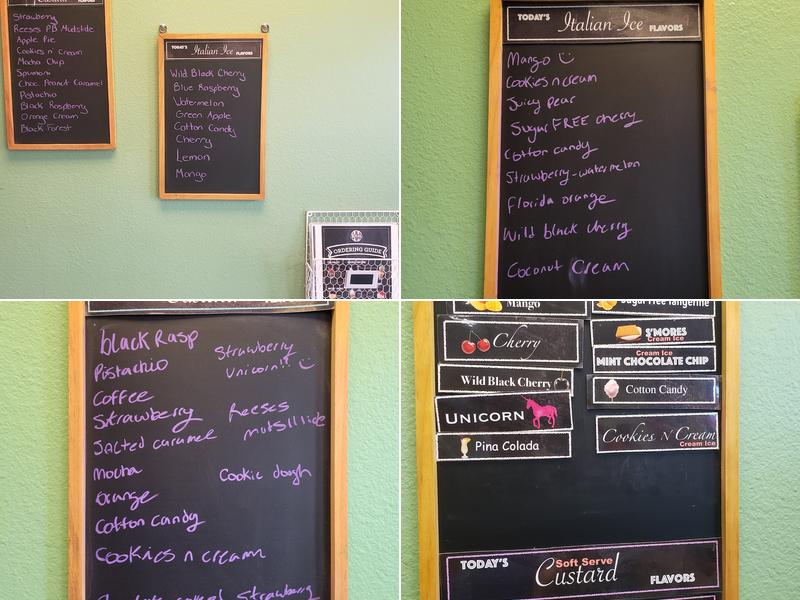 Strawberry
Reeses PB Mudslide
Apple Pie
Cookies n' Cream
Mocha Chip
Spumoni
Choc. Peanut Caramel
Pistachio
Black Raspberry
Orange Cream
Black Forest
TODAY'S Italian Ice FLAVORS
Wild Black Cherry
Blue Raspberry
Watermelon
Green Apple
Cotton Candy
Cherry
Lemon
Mango
ORDERING GUIDE
TODAY'S Italian Ice FLAVORS
Mango
Cookies n cream
Juicy pear
Sugar FREE cherry
Cotton candy
Strawberry-watermelon
Florida orange
Wild black cherry
Coconut Cream
black Rasp
Pistachio
Coffee
Strawberry
Salted caramel
Mocha
orange
Cotton candy
Cookies n cream
Strawberry
Strawberry
Unicorn!!
Reeses
Cookie dough
Mango
Sugar Free Tangerine
Cherry
S'MORES
Cream Ice
Cream Ice
MINT CHOCOLATE CHIP
Wild Black Cherry
Cotton Candy
UNICORN
Pina Colada
Cookies N' Cream
Cream Ice
TODAY'S Soft Serve Custard FLAVORS